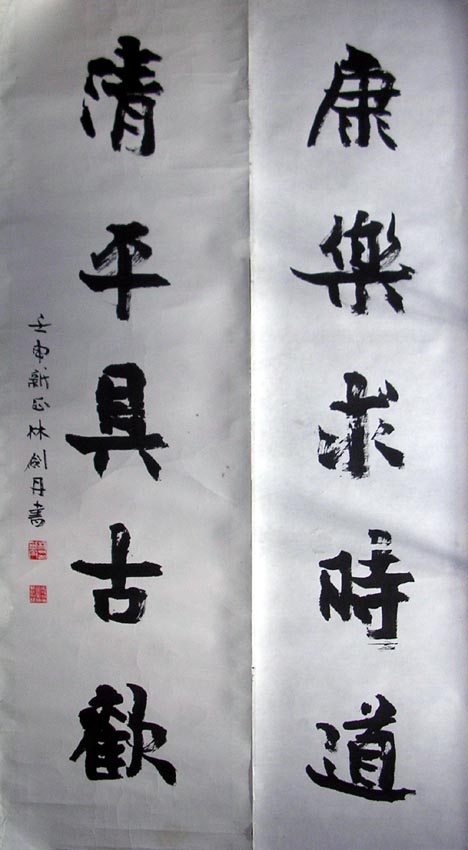 康樂求時道
清平具古歡
壬申新正林劍丹書